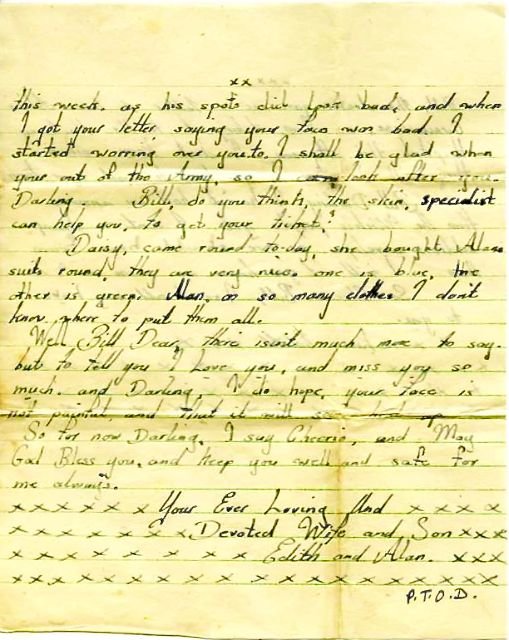 xx
this week. as his spots did look bad, and when
I got your letter, saying your face was bad. I
started worring over you to. I shall be glad when
your out of the Army, so I can look after you.
Darling. Bill, do you think, the skin, specialist
can help you, to get your ticket?
Daisy, came round to-day, she bought Alans
suits round, they are very nice. one is blue, the
other is green. Alan, as so many clothes I don't
know where to put them all.
Well Bill Dear, there isn't much more to say.
but to tell you I Love you, and miss you so
much. and Darling, I do hope, your face is
not painful, and that it will soon heal up
So for now Darling, I say Cheerio, and May
God Bless you, and keep you well and safe for
me always.
xxxxxxx Your Ever Loving And xxxx
xxxxxxxx Devoted Wife and Son xxx
xxxxxxxxxx Edith and Alan. xxx
xxxxxxxxxxxxxxxxxxxxx
P.T.O.D.